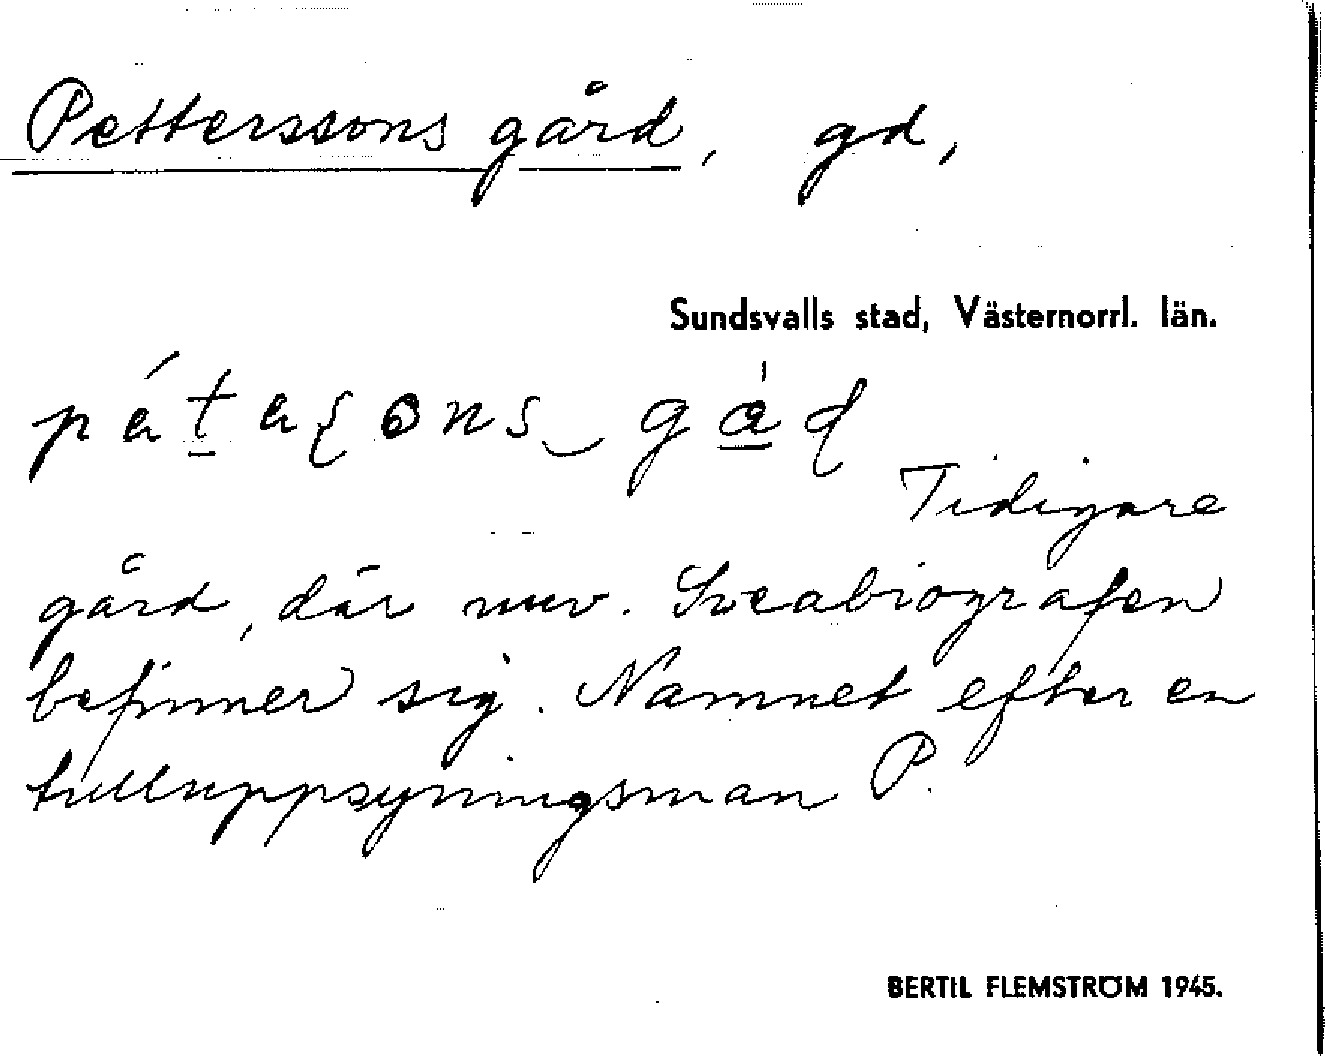 Petterssons gård, gd,
Sundsvalls stad, Västernorrl. län.
Tidigare
gård, där nuv. Sveabiografen
befinner sig. Namnet efter en
tulluppsyningsman P.
BERTIL FLEMSTRÖM 1945.